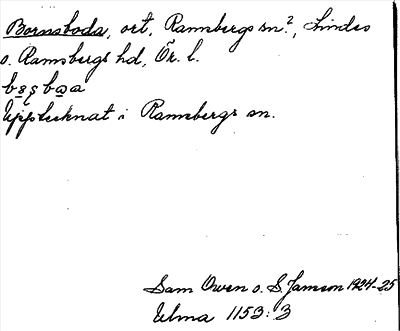 Bornsboda, ort, Ramsbergs sn?, Lindes
o. Ramsbergs hd, Ör. l.
Upptecknat i Ramsbergs sn.
Sam Owen o. S. Janson 1924-25
Ulma 1153:3